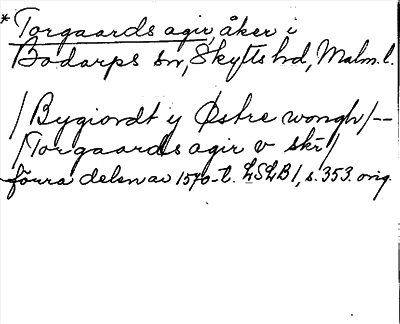 *Torgaards agir, åker i
Bodarps sn, Skytts hd, Malm. l.
/Bygiordt ij Østre wongh/--
/Torgaards agir v skr/
förra delen av 1570-t. LSLB 1, s. 353. orig.